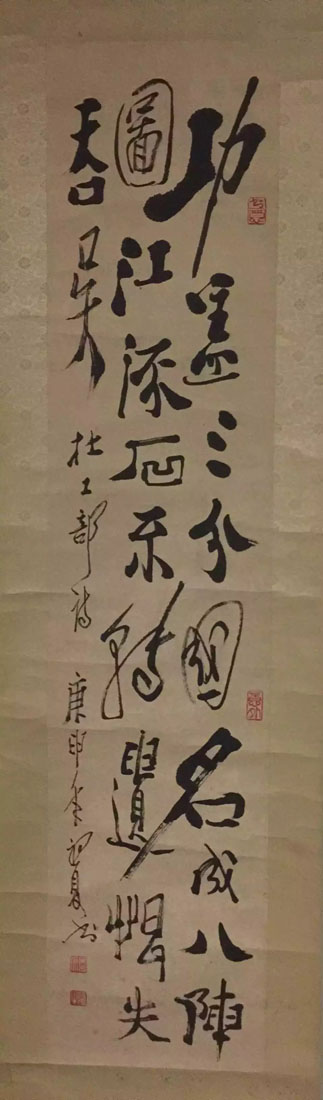 功蓋三分國名成八陣
圖江流石不轉遺恨失
吞吳 杜工部詩 庚申年初夏书